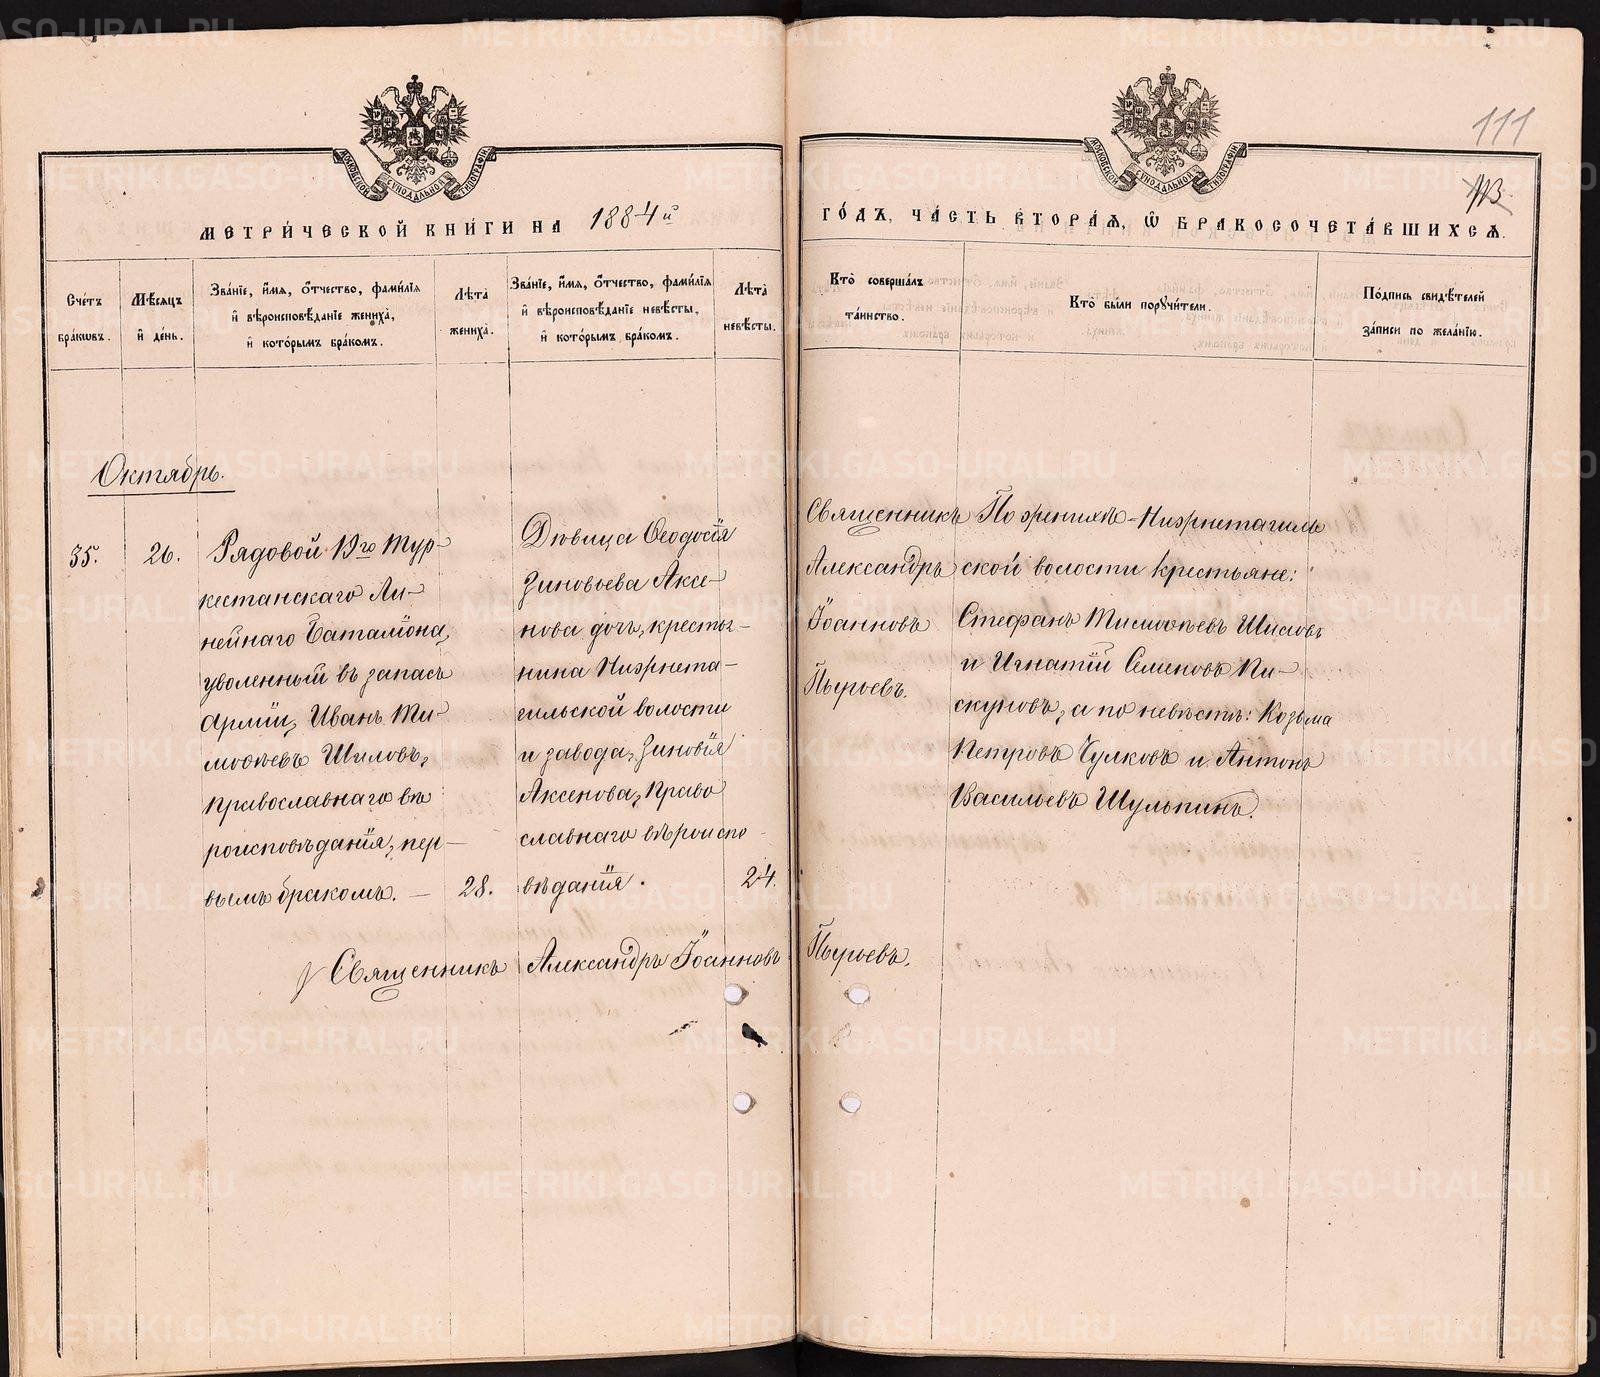 111
113
МОСКОВСКОЙ СѴНОДАЛЬНОЙ ТИПОГРАФІИ
МОСКОВСКОЙ СѴНОДАЛЬНОЙ ТИПОГРАФІИ
МЕТРИ́ЧЕСКОЙ КНИ́ГИ НА 1884й ГО́ДЪ, ЧА́СТЬ ВТОРА́Я, Ѡ҆ БРАКОСОЧЕТА́ВШИХСЯ.
Сче́тъ бра́кѡвъ.
Мѣ́сяцъ и҆ де́нь.
Зва́нїе, и҆́мя, ѻ҆́тчество, фами́лїя
и҆ вѣроисповѣ́данїе жениха̀,
и҆ кото́рымъ бра́комъ.
Лѣ́та жениха̀.
Зва́нїе, и҆́мя, ѻ҆́тчество, фами́лїя
и҆ вѣроисповѣ́данїе невѣ́сты,
и҆ кото́рымъ бра́комъ.
Лѣ́та невѣ́сты.
Кто̀ соверша́лъ
та́инство.
Кто̀ бы́ли порꙋчи́тели.
По́дпись свидѣ́телей
за́писи по жела́нїю.
Октябрь.
35.
26.
Рядовой 19го Тур-
кестанскаго Ли-
нейнаго Баталіона,
уволенный въ запасъ
Арміи, Иванъ Ти-
моѳеевъ Шиловъ,
православнаго вѣ
роисповѣданія, пер-
вымъ бракомъ. —
28.
Дѣвица Ѳеодосія
Зиновьева Аксе-
нова дочь, кресть-
нина Нижнета-
гильской волости
и завода, Зиновія
Аксенова, право
славнаго вѣроиспо-
вѣданія.
24.
Священникъ
Александръ
Іоанновъ
Пырьевъ.
По женихѣ - Нижнетагиль
ской волости крестьяне:
Стефанъ Тимоѳеевъ Шиловъ
и Игнатій Семеновъ Пи-
скуновъ, а по невѣстѣ: Козьма
Петровъ Чулковъ и Антонъ
Васильевъ Шульпинъ.
Священникъ Александръ Іоанновъ Пырьевъ.
METRIKI.GASO-URAL.RU